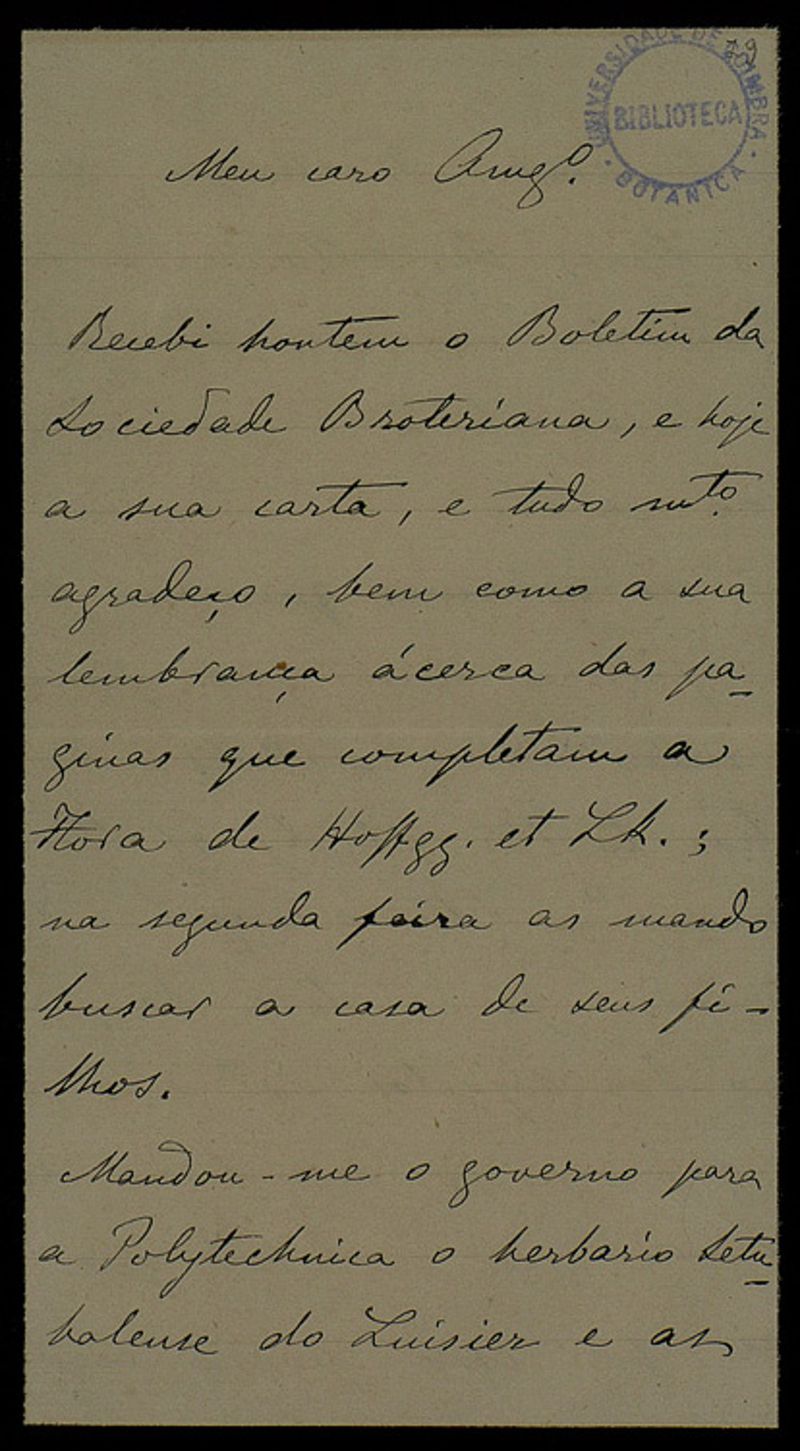 79
UNIVERSIDADE DE COIMBRA
BIBLIOTECA
BOTANICA
Meu caro Amgº.
Recebi hontem o Boletim da
Sociedade Broteriana, e hoje
a sua carta, e tudo mtº
agradeço, bem como a sua
lembrança ácerca das pa-
ginas que completam a
Flora de Hoffgg. et Lk.;
na segunda feira as mando
buscar a casa de seus fi-
lhos.
Mandou-me o governo para
a Polytechnica o herbario Setu-
balense do Luisier e as